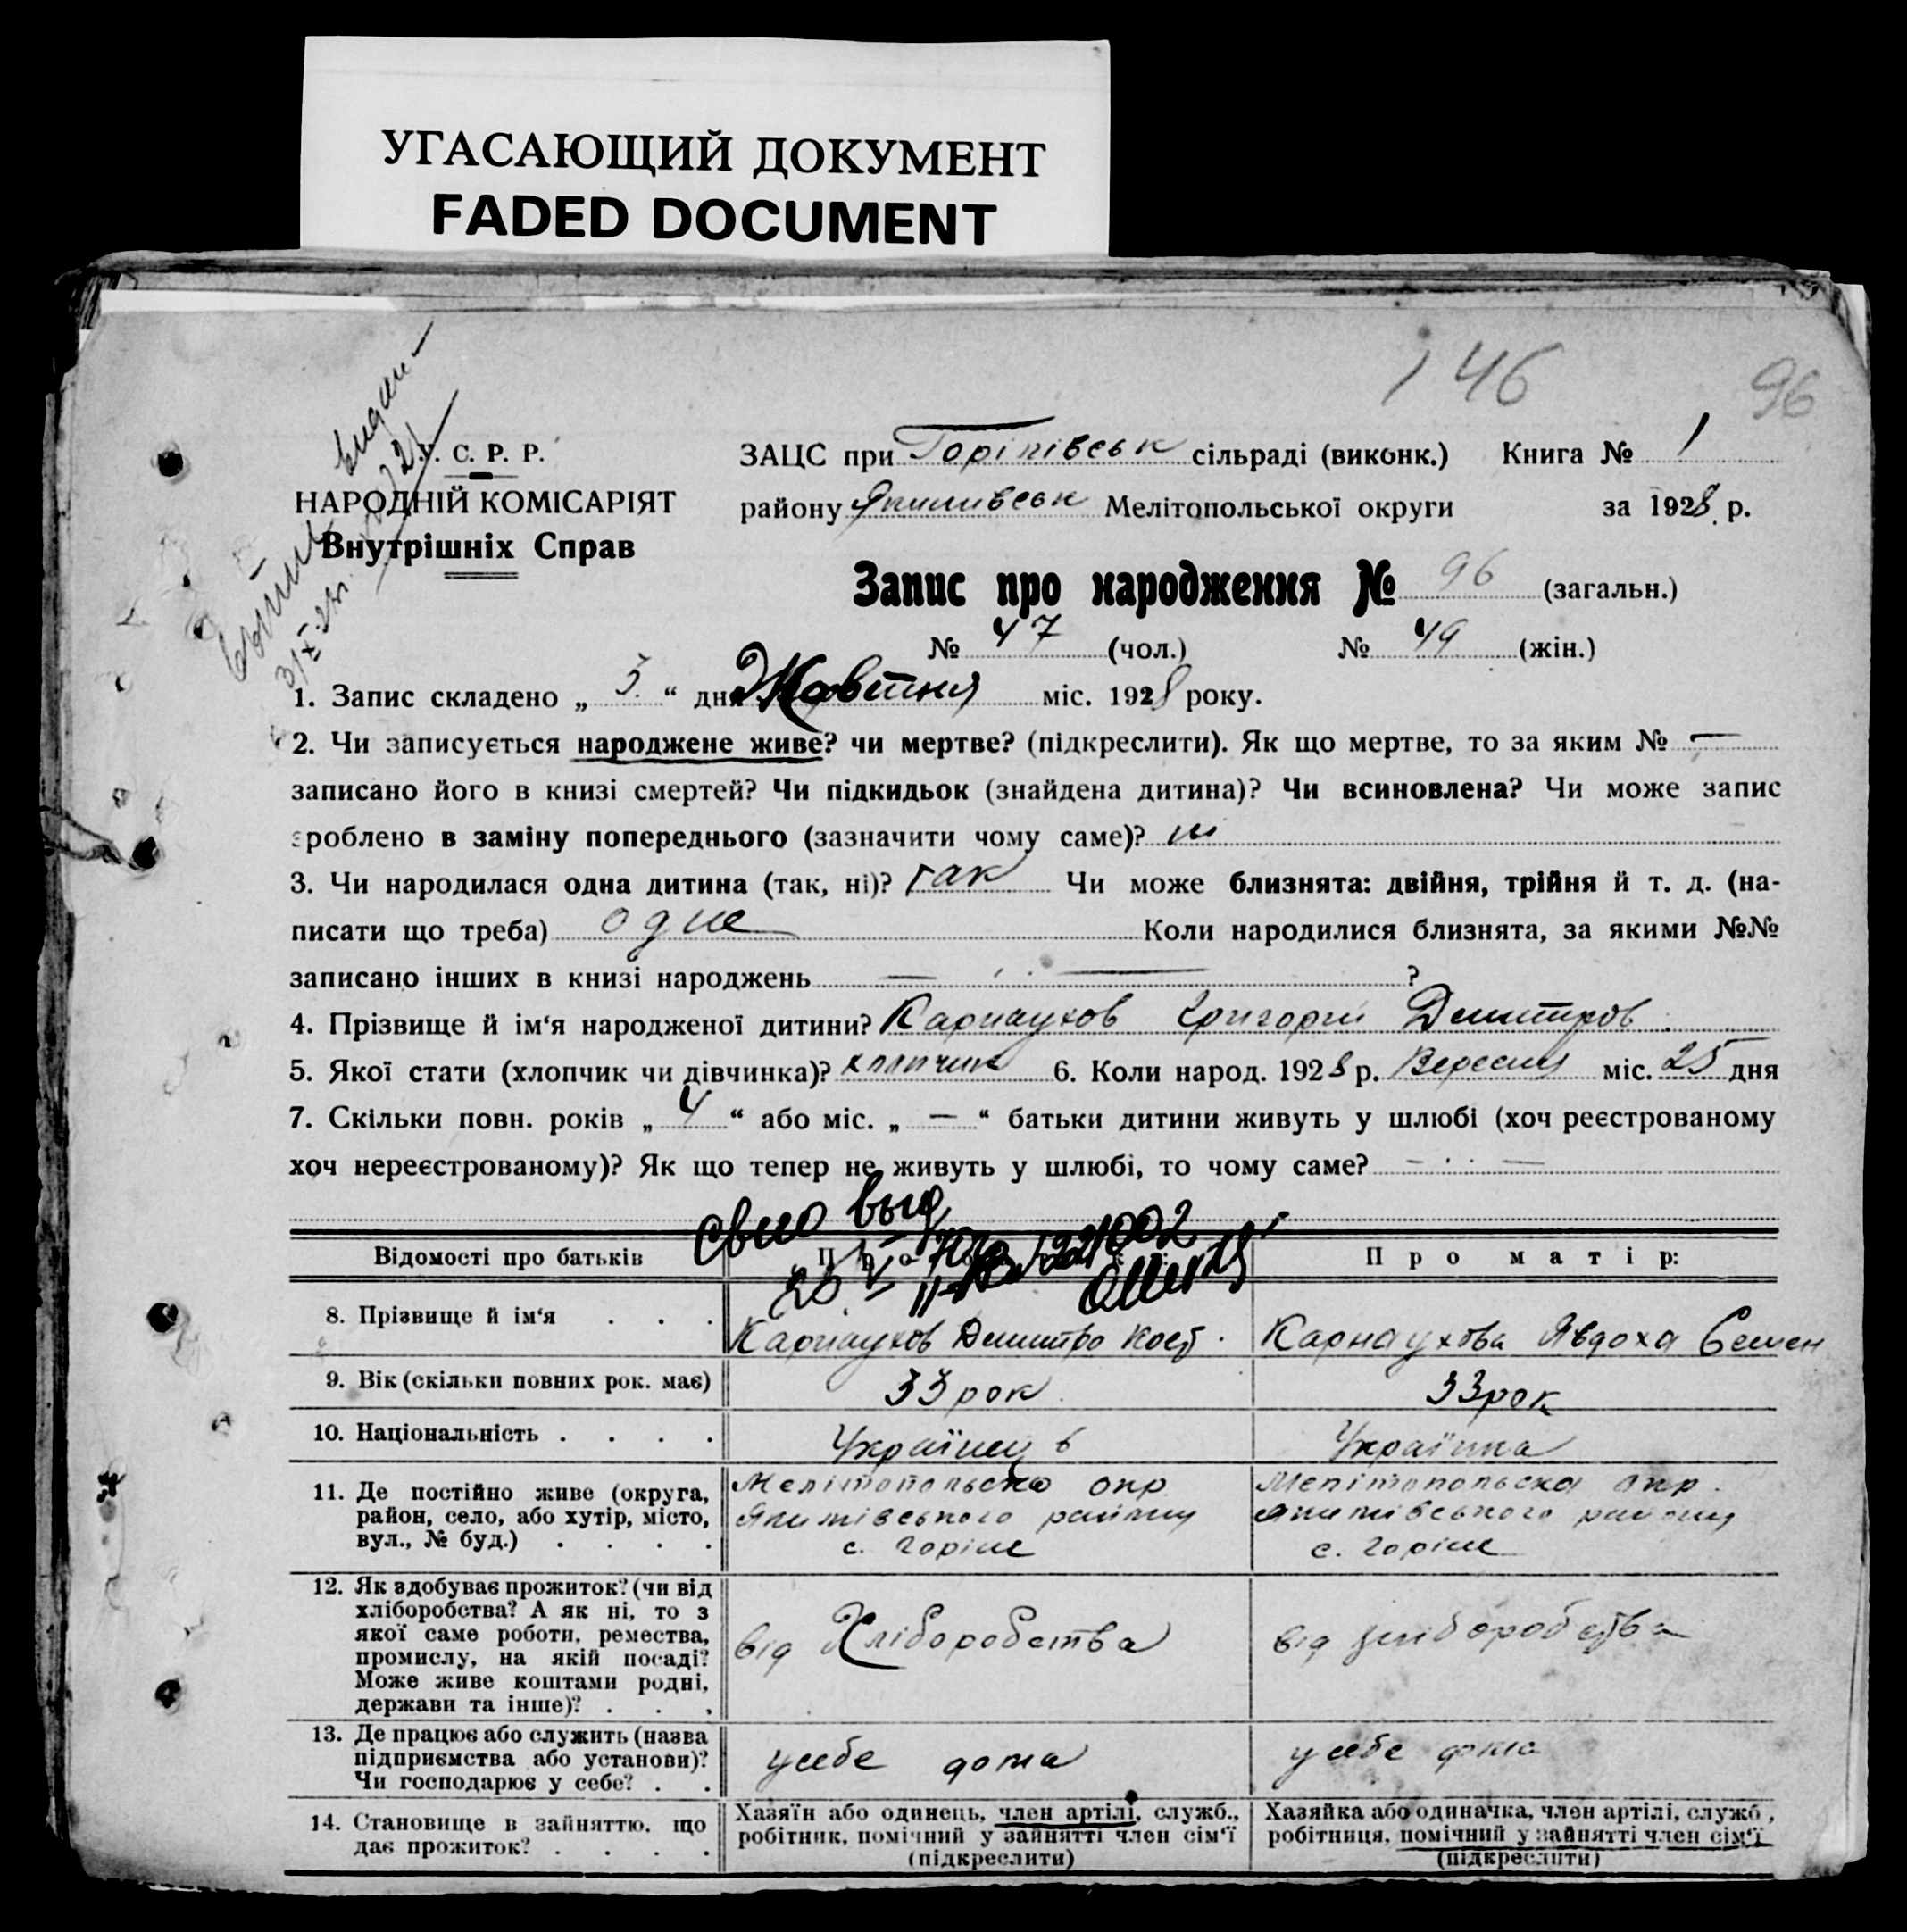 УГАСАЮЩИЙ ДОКУМЕНТ
FADED DOCUMENT
146
96
У. С. Р. Р.
НАРОДНІЙ КОМІСАРІЯТ
Внутрішніх Справ
ЗАЦС при Горіпівськ сільраді (виконк.) Книга № 1
району Якимівськ Мелітопольської округи за 1928 р.
Запис про народження № 96 (загальн.)
№ 47 (чол.) № 49 (жін.)
1. Запис складено „ 3 “ дня Жовтня міс. 1928 року.
2. Чи записується народжене живе? чи мертве? (підкреслити). Як що мертве, то за яким № —
записано його в книзі смертей? Чи підкидьок (знайдена дитина)? Чи всиновлена? Чи може запис
зроблено в заміну попереднього (зазначити чому саме)? ні
3. Чи народилася одна дитина (так, ні)? так Чи може близнята: двійня, трійня й т. д. (на-
писати що треба) одне Коли народилися близнята, за якими №№
записано інших в книзі народжень — ?
4. Прізвище й ім‘я народженої дитини? Карнаухов Григорій Дмитров
5. Якої стати (хлопчик чи дівчинка)? хлопчик 6. Коли народ. 1928 р. Вересня міс. 25 дня
7. Скільки повн. років „ 4 “ або міс. „ — “ батьки дитини живуть у шлюбі (хоч реєстрованому
хоч нереєстрованому)? Як що тепер не живуть у шлюбі, то чому саме? —
Свид выд
Відомості про батьків Про матір:
8. Прізвище й ім‘я . . . Карнаухов Дмитро Кост. Карнаухова Явдоха Семен
9. Вік (скільки повних рок. має) 33 рок 33 рок
10. Національність . . . . Українець Українка
11. Де постійно живе (округа, Мелітопольска окр Мелітопольска окр.
район, село, або хутір, місто, Якимівського району Якимівського району
вул., № буд.) . . . . с. Горіле с. Горіле
12. Як здобуває прожиток? (чи від
хліборобства? А як ні, то з
якої саме роботи, ремества, від Хліборобства від хліборобства
промислу, на якій посаді?
Може живе коштами родні,
держави та інше)? . . .
13. Де працює або служить (назва
підприємства або установи)? у себе дома у себе дома
Чи господарює у себе? . .
14. Становище в зайняттю, що Хазяїн або одинець, член артілі, служб., Хазяйка або одиначка, член артілі, служб.,
дає прожиток? . . . . робітник, помічний у зайнятті член сім‘ї робітниця, помічний у зайнятті член сім‘ї
(підкреслити) (підкреслити)